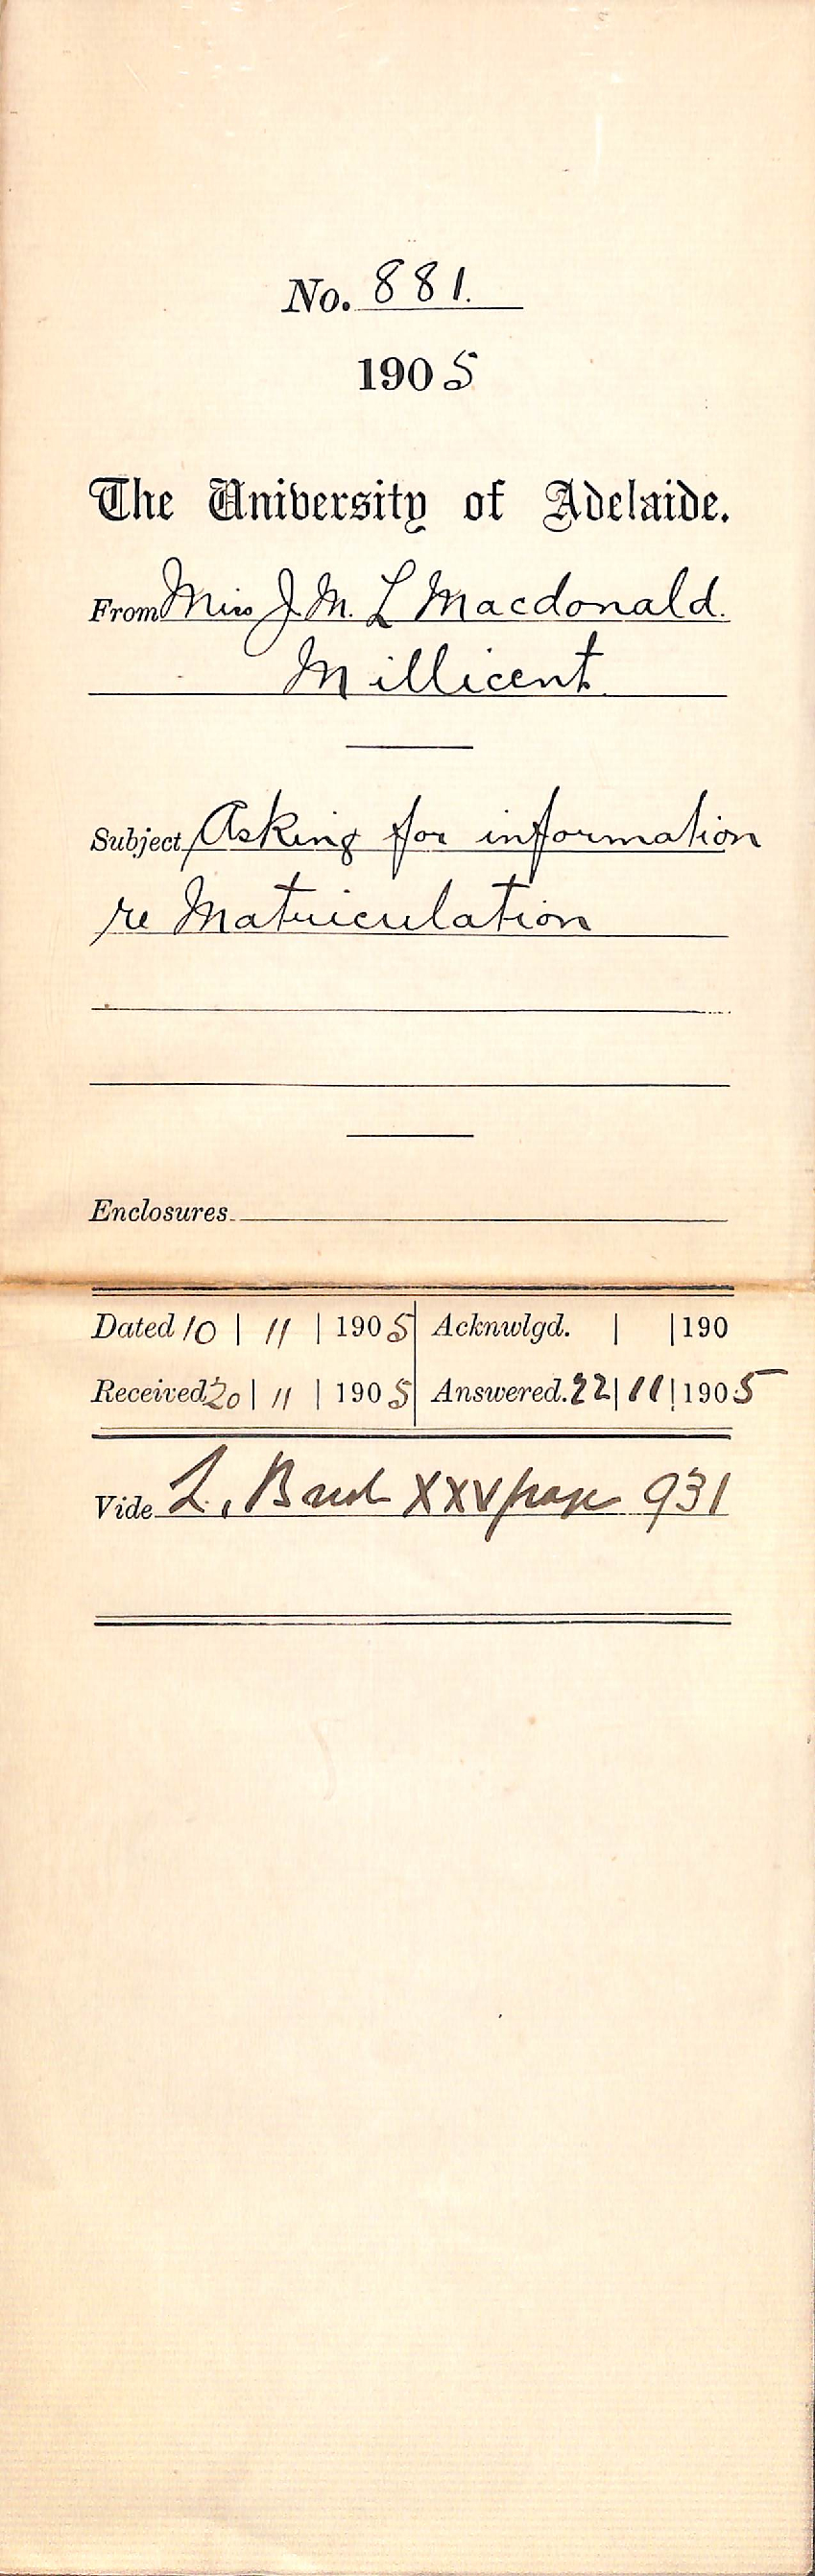 No. 881.
1905
The University of Adelaide.
From Miss J. M. L Macdonald.
Millicent.
Subject Asking for information
re Matriculation
Enclosures
Dated 10 | 11 | 1905 Acknwlgd. | | 190
Received 20 | 11 | 1905 Answered. 22 | 11 | 1905
Vide L. XXV page 931